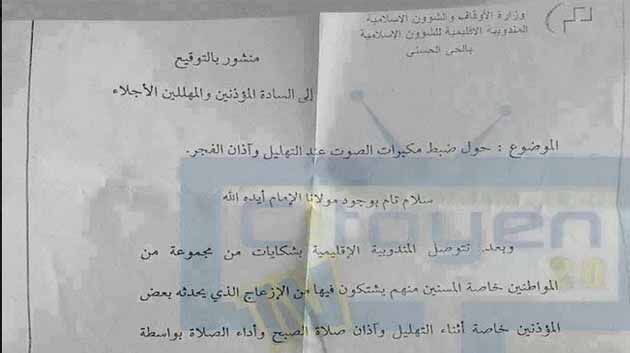 وزارة الأوقاف والشؤون الإسلامية
المندوبية الإقليمية للشؤون الإسلامية
بالحي الحسني
منشور بالتوقيع
إلى السادة المؤذنين والمهللين الأجلاء
الموضوع : حول ضبط مكبرات الصوت عند التهليل وآذان الفجر.
سلام تام بوجود مولانا الإمام أيده الله
وبعد. تتوصل المندوبية الإقليمية بشكايات من مجموعة من
المواطنين خاصة المسنين منهم يشتكون فيها من الإزعاج الذي يحدثه بعض
المؤذنين خاصة أثناء التهليل وآذان صلاة الصبح وأداء الصلاة بواسطة
Citoyen
2.0